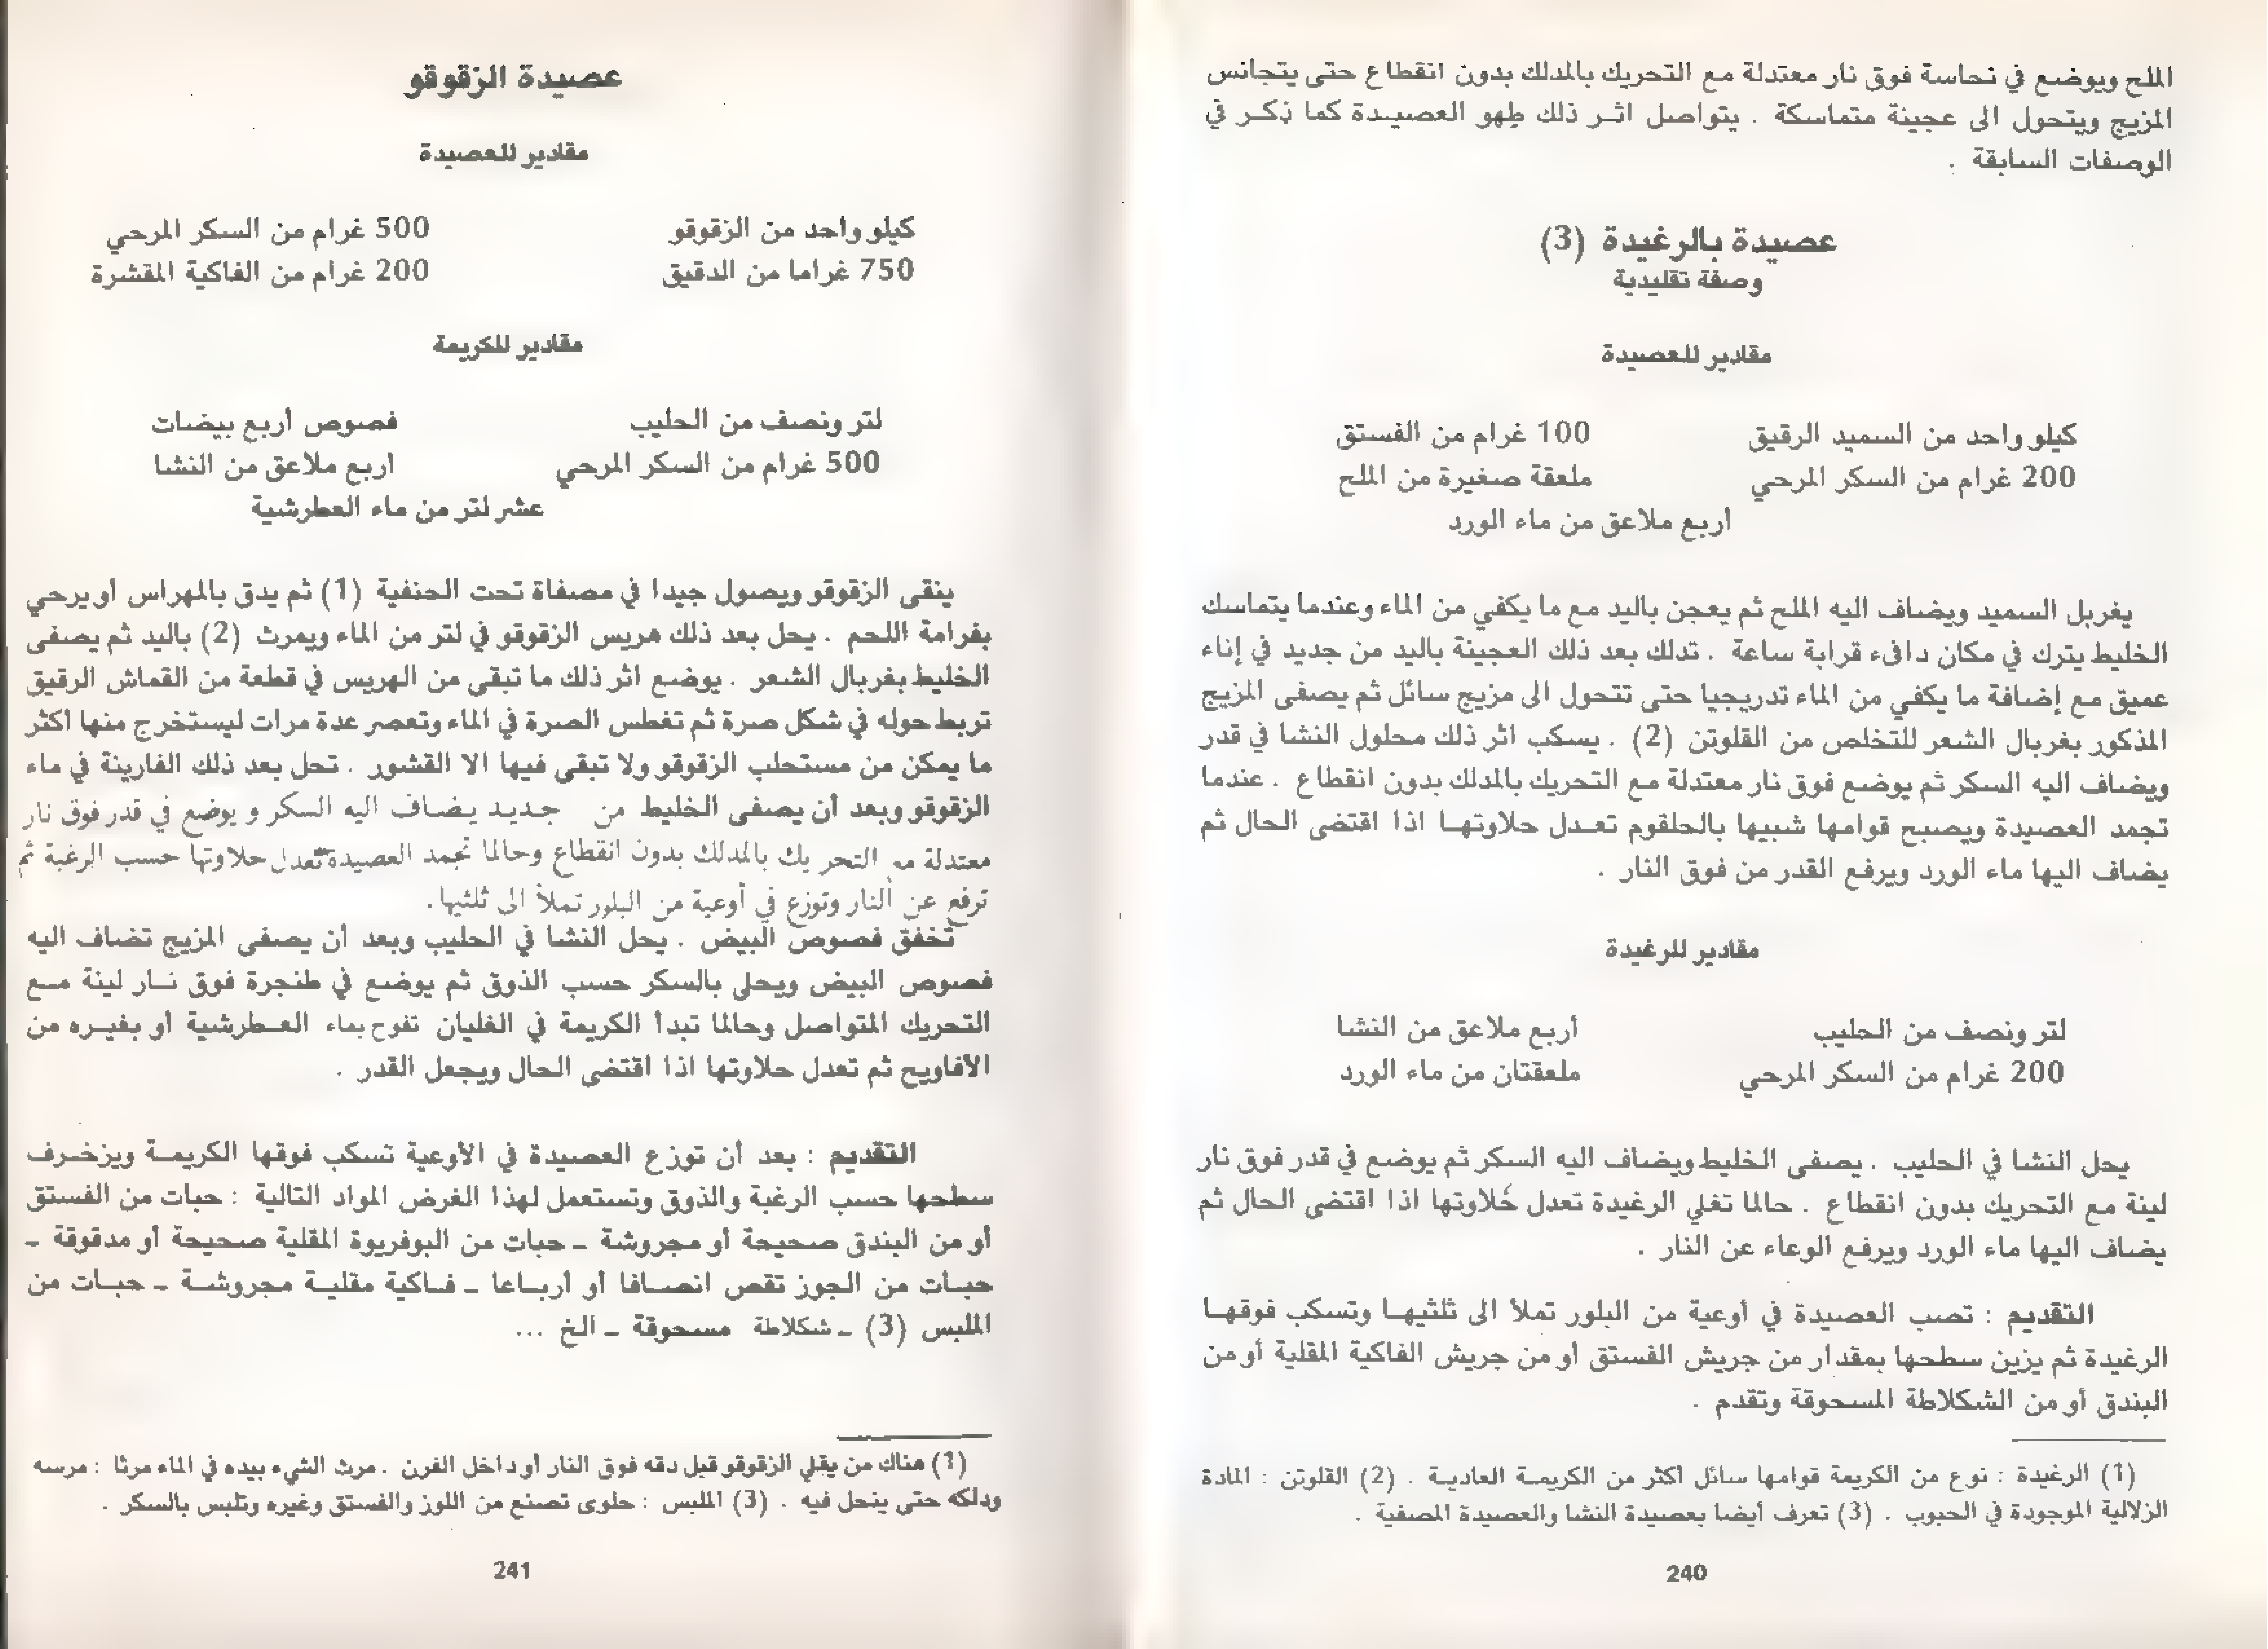 الملح ويوضع في نحاسة فوق نار معتدلة مع التحريك بالمدلك بدون انقطاع حتى يتجانس
المزيج ويتحول الى عجينة متماسكة . يتواصل اثر ذلك طهو العصيدة كما ذكر في
الوصفات السابقة .
عصيدة بالرغيدة (3)
وصفة تقليدية
مقادير للعصيدة
كيلو واحد من السميد الرقيق 100 غرام من الفستق
200 غرام من السكر المرحي ملعقة صغيرة من الملح
أربع ملاعق من ماء الورد
يغربل السميد ويضاف اليه الملح ثم يعجن باليد مع ما يكفي من الماء وعندما يتماسك
الخليط يترك في مكان دافىء قرابة ساعة . تدلك بعد ذلك العجينة باليد من جديد في إناء
عميق مع إضافة ما يكفي من الماء تدريجيا حتى تتحول الى مزيج سائل ثم يصفى المزيج
المذكور بغربال الشعر للتخلص من القلوتن (2) . يسكب اثر ذلك محلول النشا في قدر
ويضاف اليه السكر ثم يوضع فوق نار معتدلة مع التحريك بالمدلك بدون انقطاع . عندما
تجمد العصيدة ويصبح قوامها شبيها بالحلقوم تعدل حلاوتها اذا اقتضى الحال ثم
يضاف اليها ماء الورد ويرفع القدر من فوق النار .
مقادير للرغيدة
لتر ونصف من الحليب أربع ملاعق من النشا
200 غرام من السكر المرحي ملعقتان من ماء الورد
يحل النشا في الحليب . يصفى الخليط ويضاف اليه السكر ثم يوضع في قدر فوق نار
لينة مع التحريك بدون انقطاع . حالما تغلي الرغيدة تعدل حلاوتها اذا اقتضى الحال ثم
يضاف اليها ماء الورد ويرفع الوعاء عن النار .
التقديم : تصب العصيدة في أوعية من البلور تملأ الى ثلثيها وتسكب فوقها
الرغيدة ثم يزين سطحها بمقدار من جريش الفستق أو من جريش الفاكية المقلية أو من
البندق أو من الشكلاطة المسحوقة وتقدم .
(1) الرغيدة : نوع من الكريمة قوامها سائل اكثر من الكريمة العادية . (2) القلوتن : المادة
الزلالية الموجودة في الحبوب . (3) تعرف أيضا بعصيدة النشا والعصيدة المصفية .
240
عصيدة الزقوقو
مقادير للعصيدة
كيلو واحد من الزقوقو 500 غرام من السكر المرحي
750 غراما من الدقيق 200 غرام من الفاكية المقشرة
مقادير للكريمة
لتر ونصف من الحليب فصوص أربع بيضات
500 غرام من السكر المرحي اربع ملاعق من النشا
عشر لتر من ماء العطرشية
ينقى الزقوقو ويصول جيدا في مصفاة تحت الحنفية (1) ثم يدق بالمهراس أو يرحي
بفرامة اللحم . يحل بعد ذلك هريس الزقوقو في لتر من الماء ويمرث (2) باليد ثم يصفى
الخليط بغربال الشعر . يوضع اثر ذلك ما تبقى من الهريس في قطعة من القماش الرقيق
تربط حوله في شكل صرة ثم تغطس الصرة في الماء وتعصر عدة مرات ليستخرج منها اكثر
ما يمكن من مستحلب الزقوقو ولا تبقى فيها الا القشور . تحل بعد ذلك الفارينة في ماء
الزقوقو وبعد أن يصفى الخليط من جديد يضاف اليه السكر و يوضع في قدر فوق نار
معتدلة مع التحر يك بالمدلك بدون انقطاع وحالما تجمد العصيدة تعدل حلاوتها حسب الرغبة ثم
ترفع عن النار وتوزع في أوعية من البلور تملأ الى ثلثيها.
تخفق فصوص البيض . يحل النشا في الحليب وبعد أن يصفى المزيج تضاف اليه
فصوص البيض ويحلى بالسكر حسب الذوق ثم يوضع في طنجرة فوق نار لينة مع
التحريك المتواصل وحالما تبدأ الكريمة في الغليان تفوح بماء العطرشية أو بغيره من
الأفاويح ثم تعدل حلاوتها اذا اقتضى الحال ويجعل القدر .
التقديم : بعد أن توزع العصيدة في الأوعية تسكب فوقها الكريمة ويزخرف
سطحها حسب الرغبة والذوق وتستعمل لهذا الغرض المواد التالية : حبات من الفستق
أو من البندق صحيحة أو مجروشة - حبات من البوفريوة المقلية صحيحة أو مدقوقة -
حبات من الجوز تقص انصافا أو أرباعا - فاكية مقلية مجروشة - حبات من
الملبس (3) - شكلاطة مسحوقة - الخ ...
(1) هناك من يقلي الزقوقو قبل دقه فوق النار أو داخل الفرن . مرث الشيء بيده في الماء مرثا : مرسه
ودلكه حتى ينحل فيه . (3) الملبس : حلوى تصنع من اللوز والفستق وغيره وتلبس بالسكر .
241